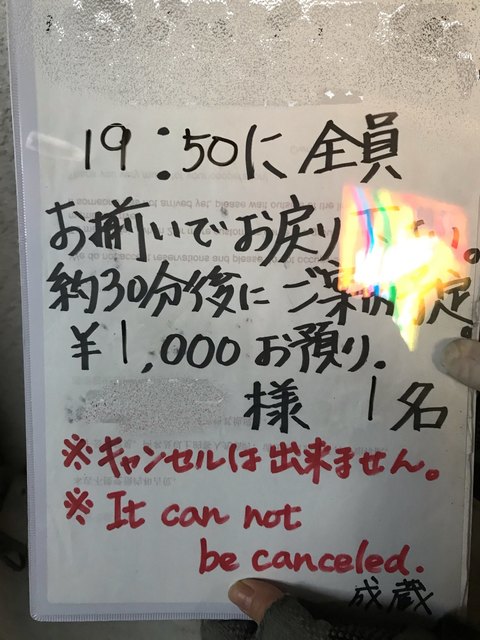 19:50に全員
お揃いでお戻り下さい。
約30分後にご案内予定。
¥1,000お預り.
様 1名
※キャンセルは出来ません。
※ It can not
be canceled.
成蔵